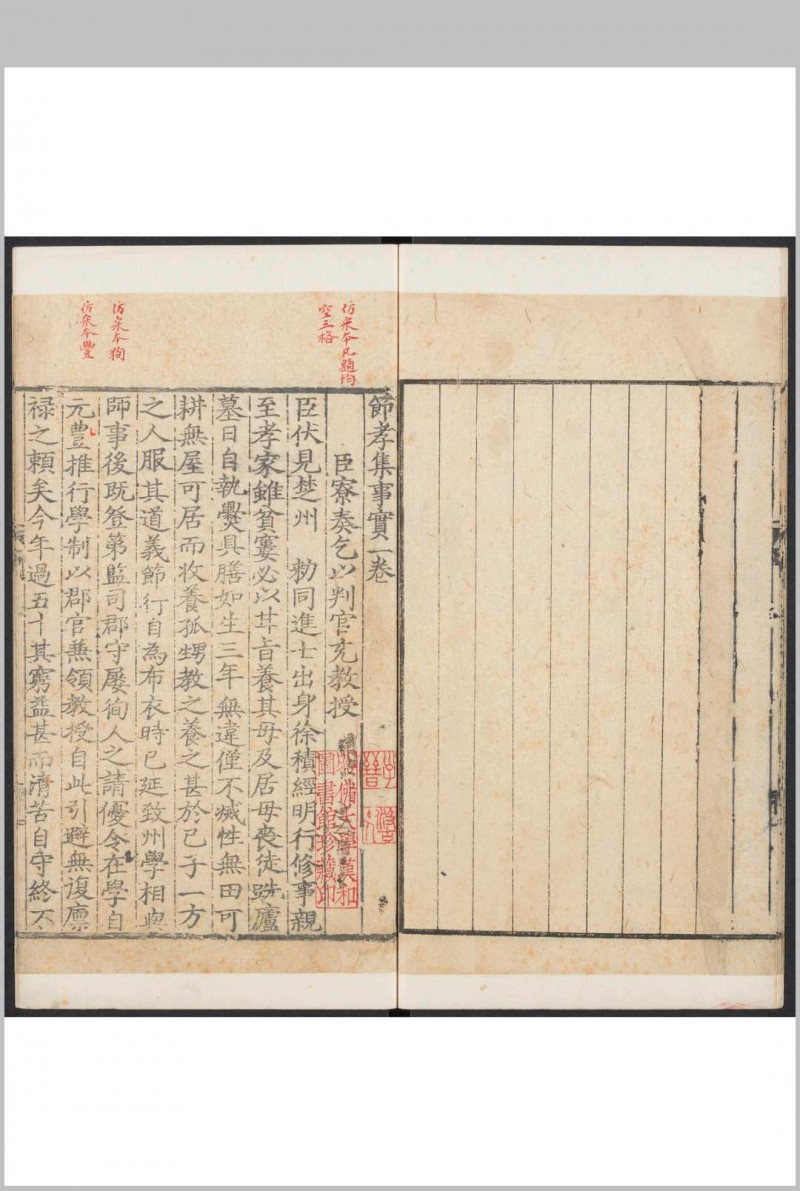 節孝集事實一卷
臣寮奏乞以判官充教授
臣伏見楚州　勑同進士出身徐積經明行修事親
至孝家雖貧窶必以甘旨養其母及居母喪徒跣廬
墓日自執爨具膳如生三年無違僅不滅性無田可
耕無屋可居而收養孤甥教之養之甚於己子一方
之人服其道義節行自為布衣時已延致州學相與
師事後既登第監司郡守屡徇人之請優令在學自
元豐推行學制以郡官兼領教授自此引避無復廪
禄之賴矣今年過五十其窮益甚而清苦自守終不
仿宋本凡題均
空三格
仿宋本徇
仿宋本豐
哈佛大學漢和
圖書館珍藏印